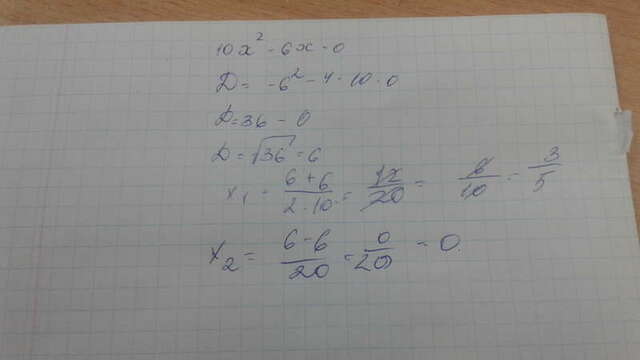 10x² - 6x - 0
D = -6² - 4 · 10 · 0
D = 36 - 0
D = √36 = 6
x₁ = (6+6)/(2·10) = 12/20 = 6/10 = 3/5
x₂ = (6-6)/20 = 0/20 = 0.